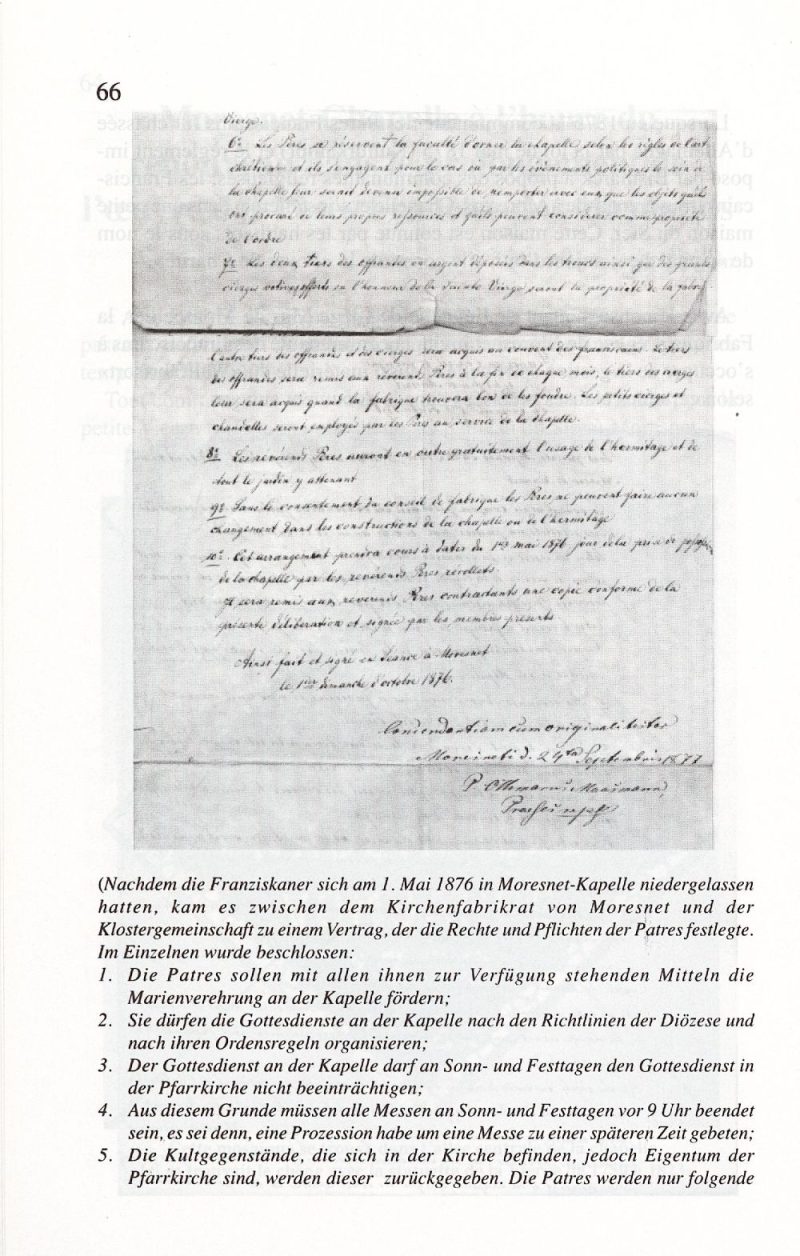 66
Vierge.
6º Les Pères se réservent la faculté d'orner la chapelle selon les règles de l'art
chrétien et ils s'engagent pour le cas où par les évènements politiques le soin de
la chapelle leur serait devenu impossible de n'emporter avec eux que les objets qu'ils
ont procuré de leurs propres ressources et qu'ils peuvent considérer comme propriété
de l'ordre
7º Les deux tiers des offrandes en argent déposées dans les troncs ainsi que des grands
cierges votives offerts en l'honneur de la Sainte Vierge seront la propriété de la fabri-
l'autre tiers des offrandes et des cierges sera acquis au couvent des franciscains. Le tiers
des offrandes sera remis aux révérends Pères à la fin de chaque mois, le tiers des cierges
leur sera acquis quand la fabrique trouvera bon de les fondre. Les petits cierges et
chandelles seront employés par les Pères au service de la chapelle.
8º Les révérends Pères auront en outre gratuitement l'usage de l'hermitage et de
tout le jardin y attenant
9º Sans le consentement du conseil de fabrique les Pères ne peuvent faire aucun
changement dans les constructions de la chapelle ou de l'hermitage
10º Cet arrangement prendra cours à dater du 1er mai 1876 jour de la prise de
de la chapelle par les révérends Pères récollets
Il sera remis aux révérends Pères contractants une copie conforme de la
présente délibération et signée par les membres présents
Ainsi fait et signé en Séance à Moresnet
le 1er dimanche d'octobre 1876.
cum originali testor
Moresneti d. 24ta Septembris 1877
P. Othmarus Maasmann,
(Nachdem die Franziskaner sich am 1. Mai 1876 in Moresnet-Kapelle niedergelassen
hatten, kam es zwischen dem Kirchenfabrikrat von Moresnet und der
Klostergemeinschaft zu einem Vertrag, der die Rechte und Pflichten der Patres festlegte.
Im Einzelnen wurde beschlossen:
1. Die Patres sollen mit allen ihnen zur Verfügung stehenden Mitteln die
Marienverehrung an der Kapelle fördern;
2. Sie dürfen die Gottesdienste an der Kapelle nach den Richtlinien der Diözese und
nach ihren Ordensregeln organisieren;
3. Der Gottesdienst an der Kapelle darf an Sonn- und Festtagen den Gottesdienst in
der Pfarrkirche nicht beeinträchtigen;
4. Aus diesem Grunde müssen alle Messen an Sonn- und Festtagen vor 9 Uhr beendet
sein, es sei denn, eine Prozession habe um eine Messe zu einer späteren Zeit gebeten;
5. Die Kultgegenstände, die sich in der Kirche befinden, jedoch Eigentum der
Pfarrkirche sind, werden dieser zurückgegeben. Die Patres werden nur folgende